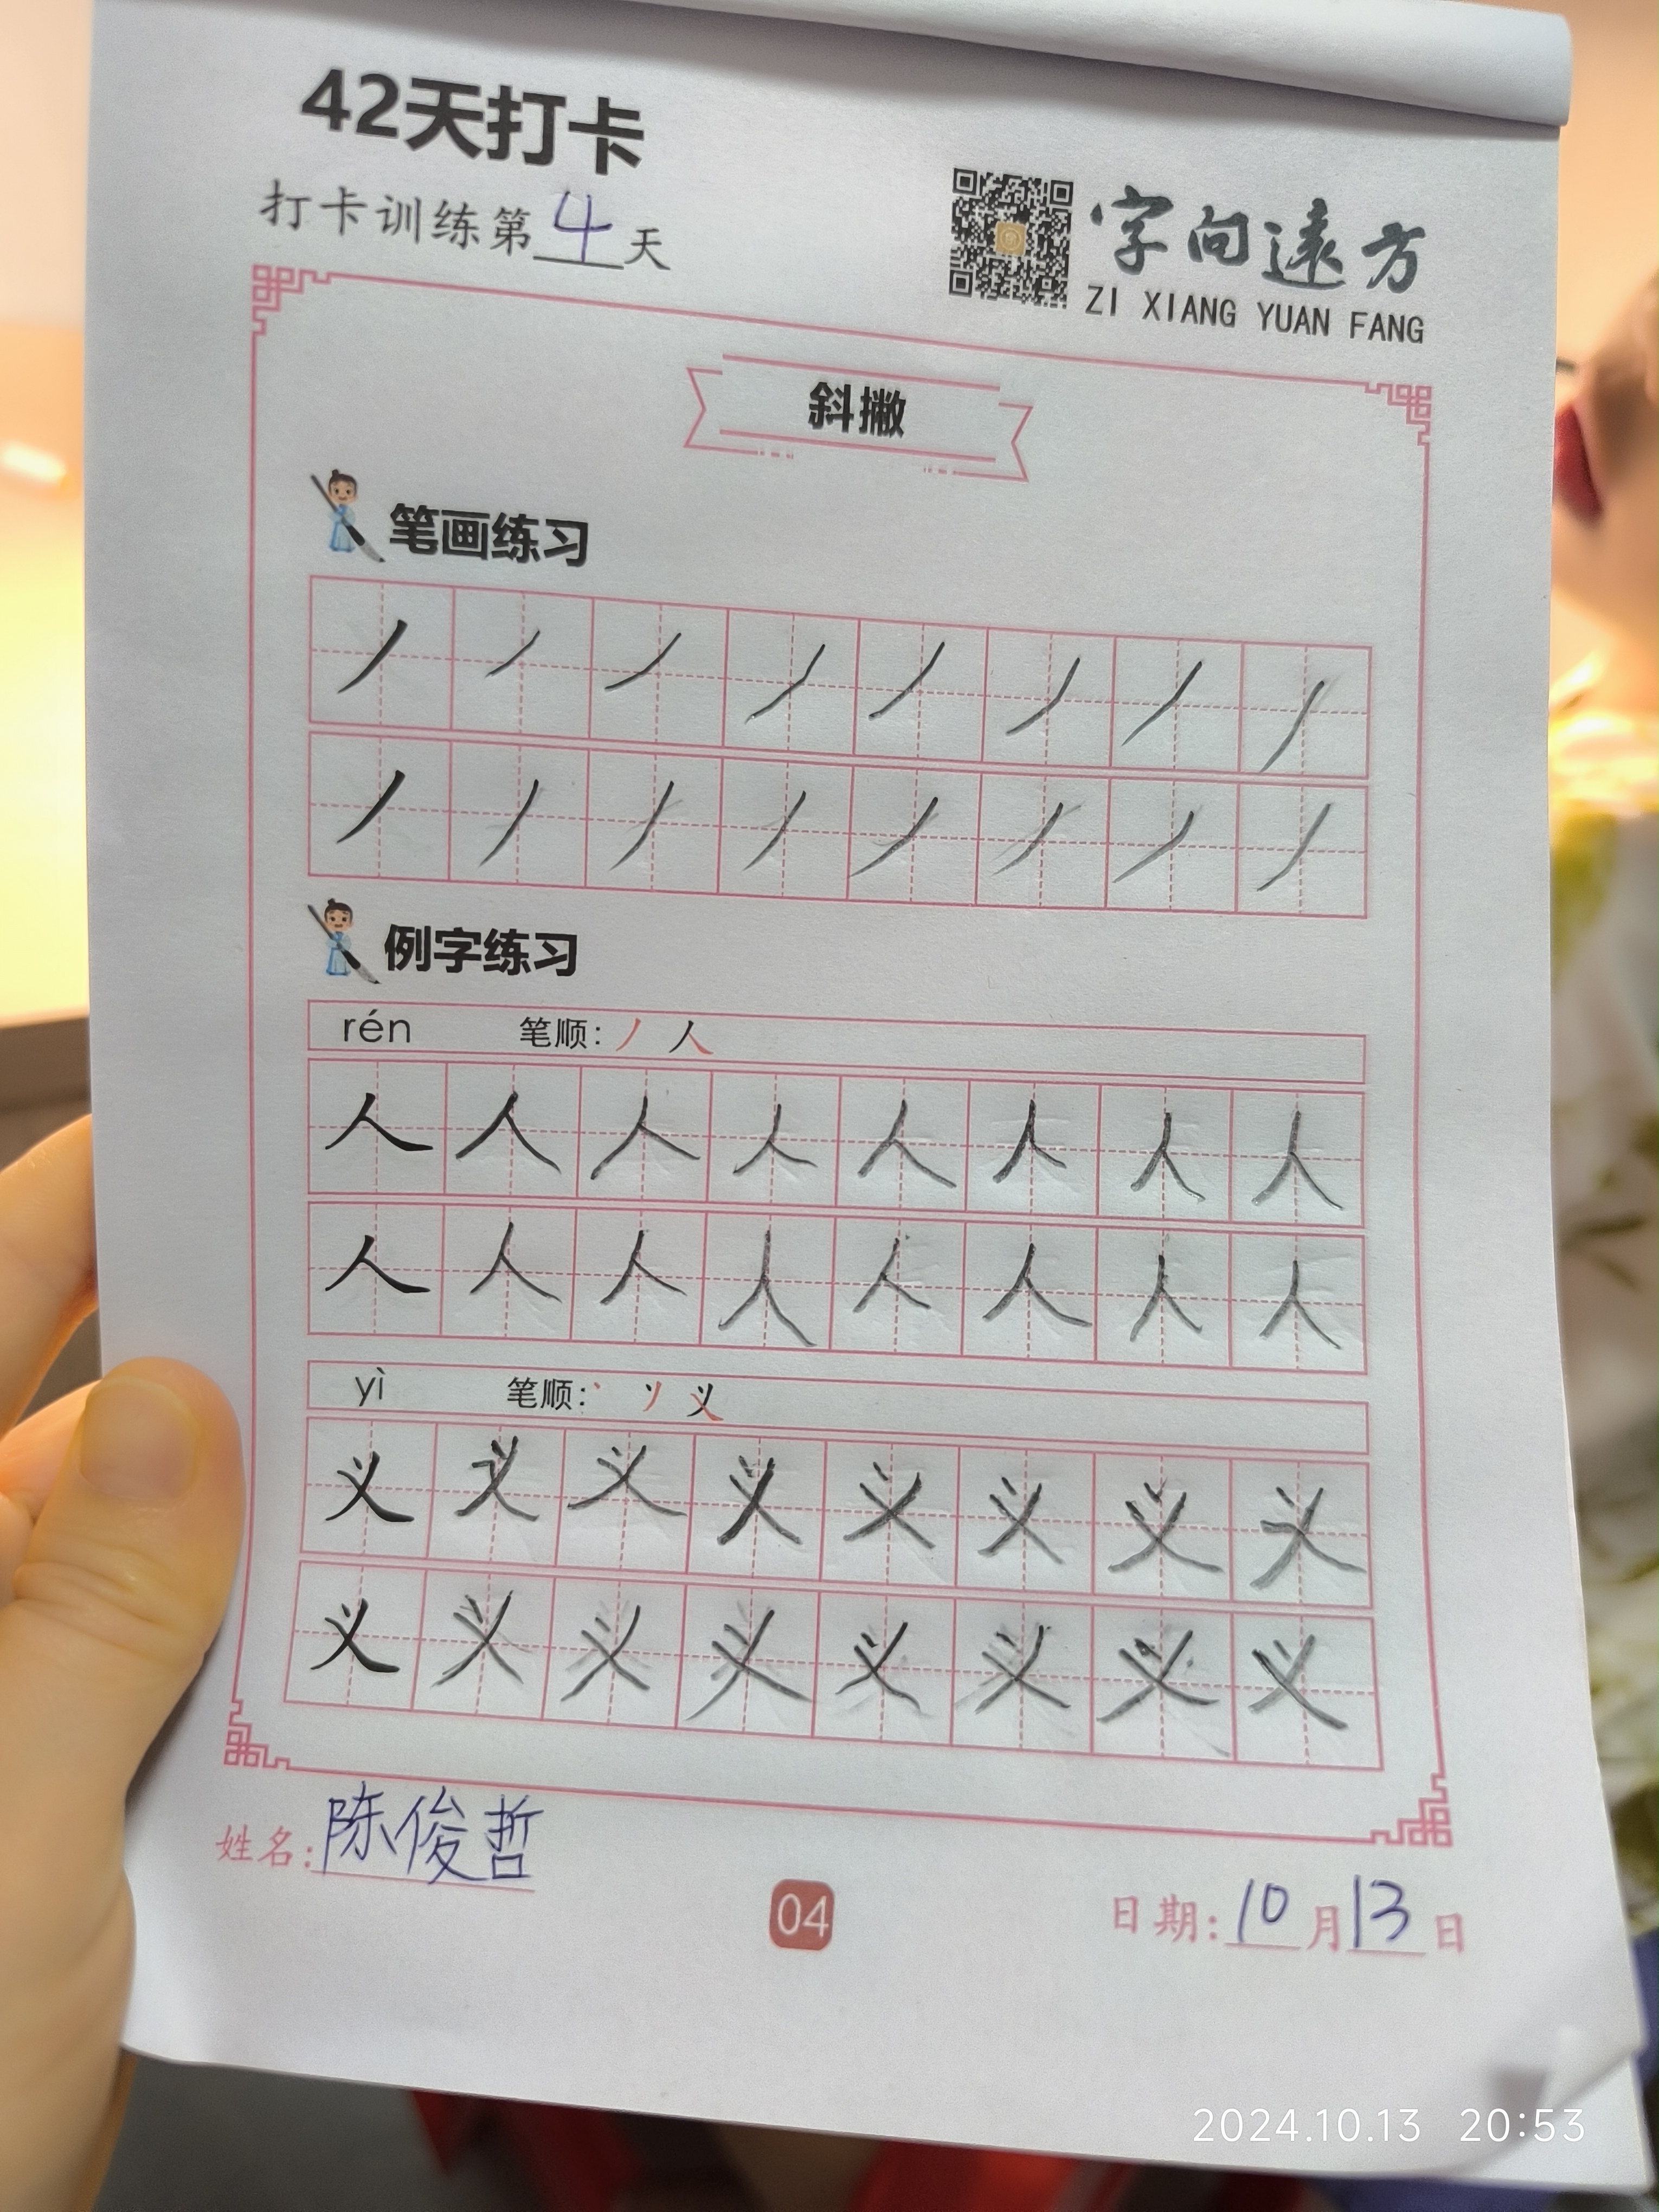 42天打卡
打卡训练第4天
字向遠方
ZI XIANG YUAN FANG
斜撇
笔画练习
丿丿丿丿丿丿丿丿
丿丿丿丿丿丿丿丿
例字练习
rén 笔顺: 丿 人
人人人人人人人人
人人人人人人人人
yì 笔顺: 丶 丷 义
义义义义义义义义
义义义义义义义义
姓名: 陈俊哲
04
日期: 10月13日
2024.10.13 20:53